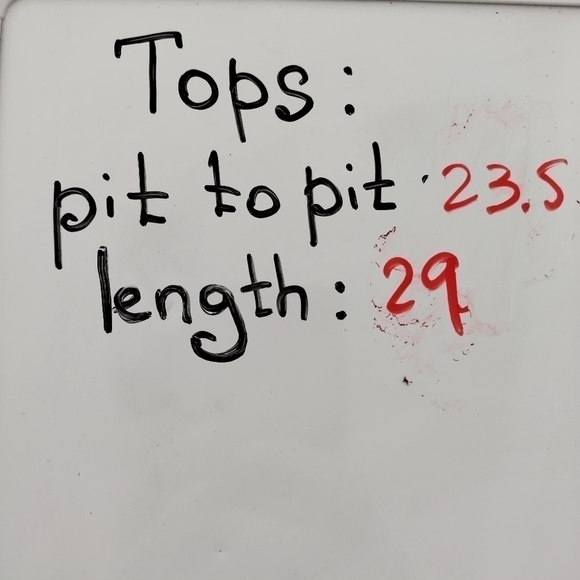 Tops:
pit to pit · 23.5
length: 29